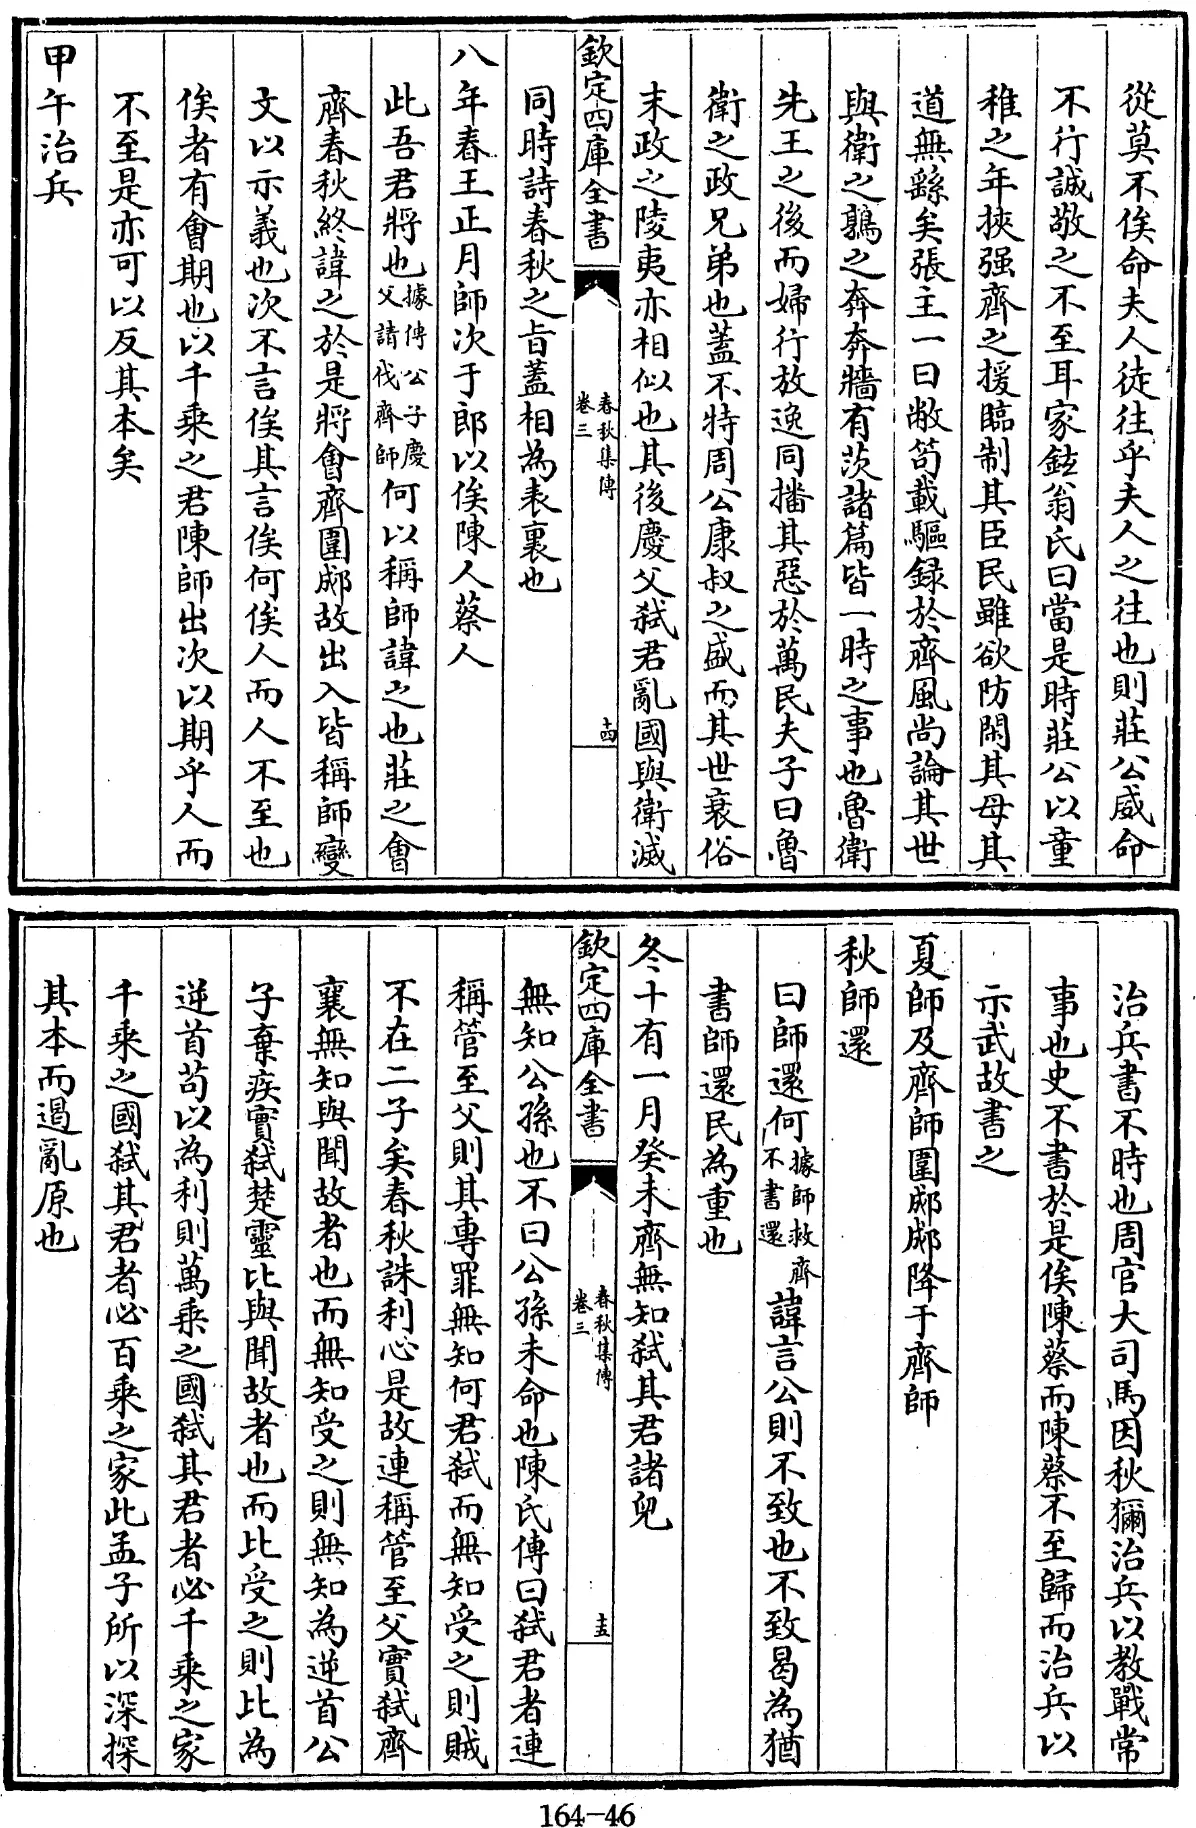 從莫不俟命夫人徒往乎夫人之往也則莊公威命
不行誠敬之不至耳家鉉翁氏曰當是時莊公以童
稚之年挾强齊之援臨制其臣民雖欲防閑其母其
道無繇矣張主一曰敝笱載驅録於齊風尚論其世
與衛之鶉之奔奔牆有茨諸篇皆一時之事也魯衛
先王之後而婦行放逸同播其惡於萬民夫子曰魯
衛之政兄弟也蓋不特周公康叔之盛而其世衰俗
末政之陵夷亦相似也其後慶父弑君亂國與衛滅
欽定四庫全書
春秋集傳
卷三
十四
同時詩春秋之旨蓋相為表裏也
八年春王正月師次于郎以俟陳人蔡人
此吾君將也據傳公子慶父請伐齊師何以稱師諱之也莊之會
齊春秋終諱之於是將會齊圍郕故出入皆稱師變
文以示義也次不言俟其言俟何俟人而人不至也
俟者有會期也以千乘之君陳師出次以期乎人而
不至是亦可以反其本矣
甲午治兵
治兵書不時也周官大司馬因秋獮治兵以教戰常
事也史不書於是俟陳蔡而陳蔡不至歸而治兵以
示武故書之
夏師及齊師圍郕郕降于齊師
秋師還
曰師還何據師救齊不書還諱言公則不致也不致曷為猶
書師還民為重也
冬十有一月癸未齊無知弑其君諸兒
欽定四庫全書
春秋集傳
卷三
十五
無知公孫也不曰公孫未命也陳氏傳曰弑君者連
稱管至父則其專罪無知何君弑而無知受之則賊
不在二子矣春秋誅利心是故連稱管至父實弑齊
襄無知與聞故者也而無知受之則無知為逆首公
子棄疾實弑楚靈比與聞故者也而比受之則比為
逆首苟以為利則萬乘之國弑其君者必千乘之家
千乘之國弑其君者必百乘之家此孟子所以深探
其本而遏亂原也
164-46